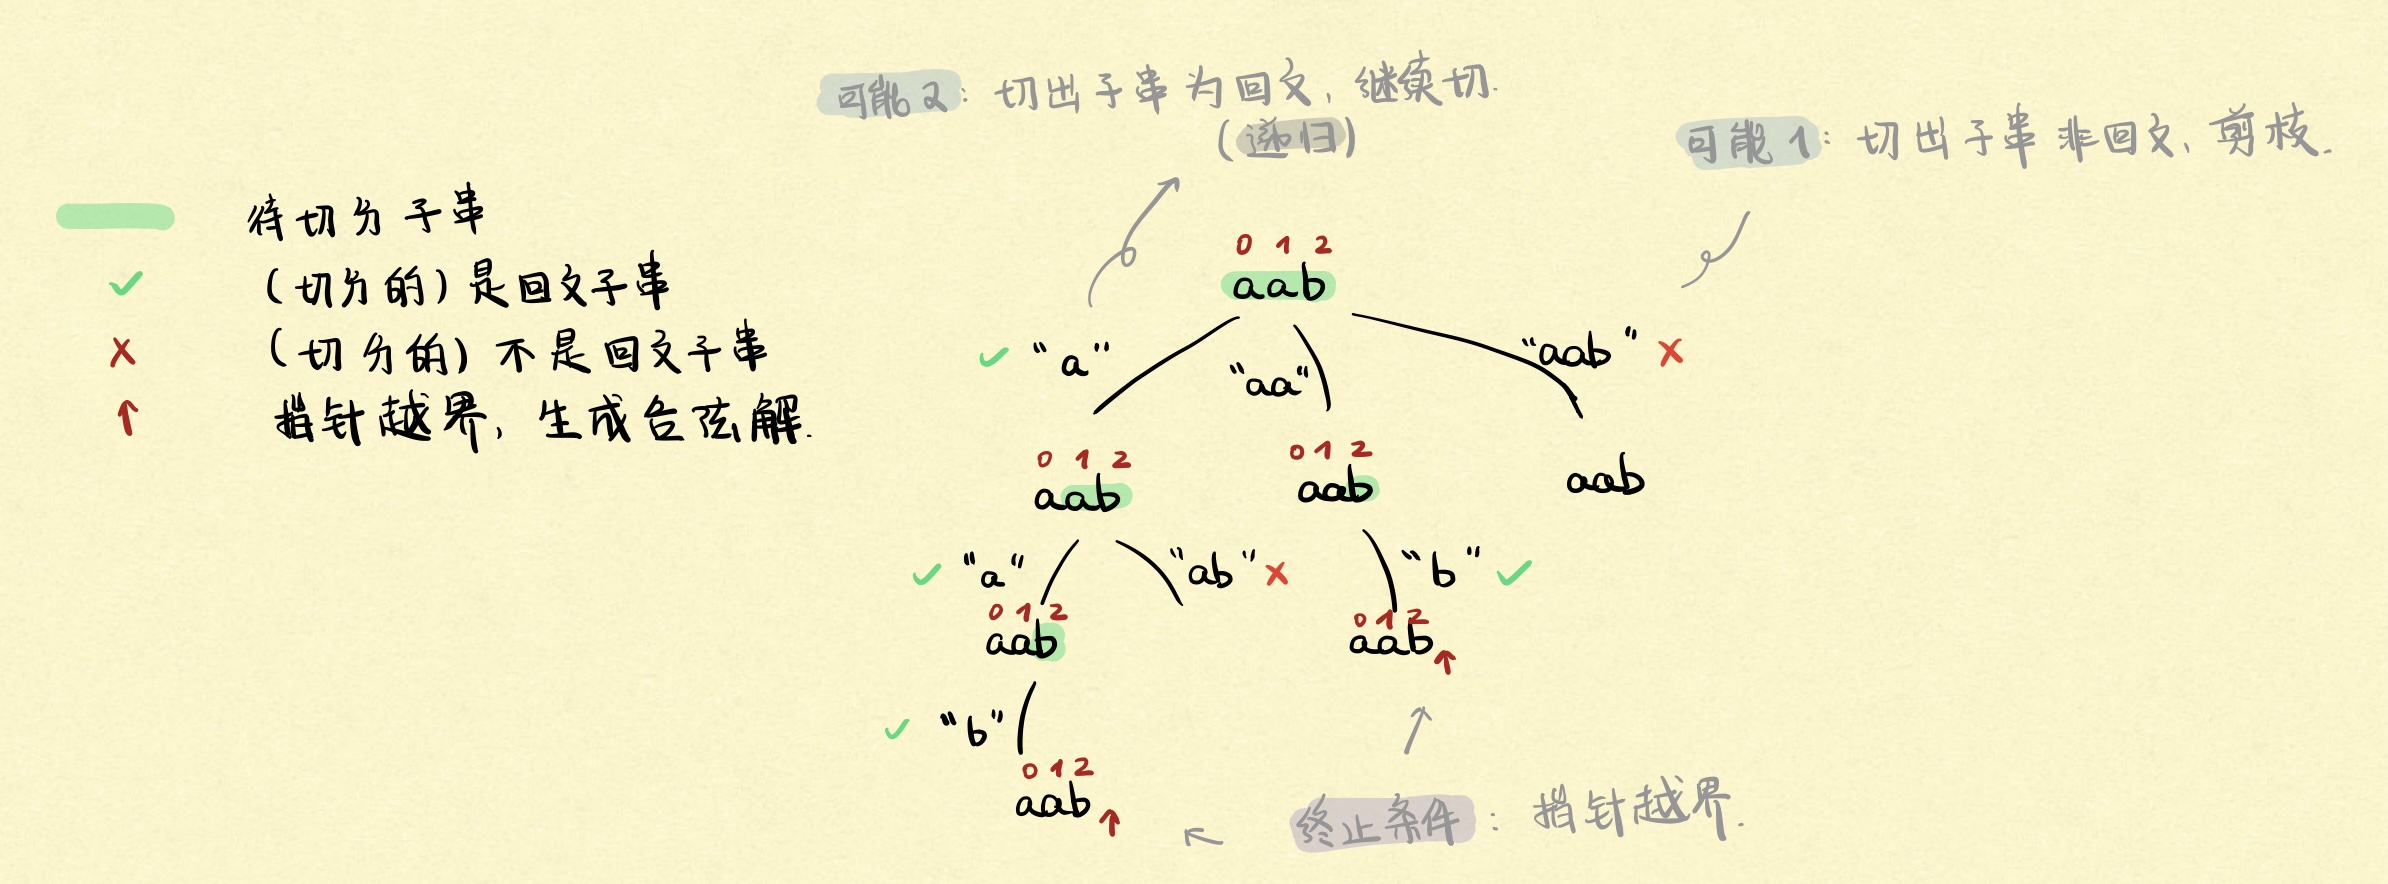 可能2：切出子串为回文，继续切.
（递归）
可能1：切出子串非回文，剪枝.
待切分子串
（切分的）是回文子串
（切分的）不是回文子串
指针越界，生成合法解.
0 1 2
aab
"a"
"aa"
"aab"
0 1 2
aab
0 1 2
aab
aab
"a"
"ab"
"b"
0 1 2
aab
0 1 2
aab
"b"
0 1 2
aab
终止条件：指针越界.